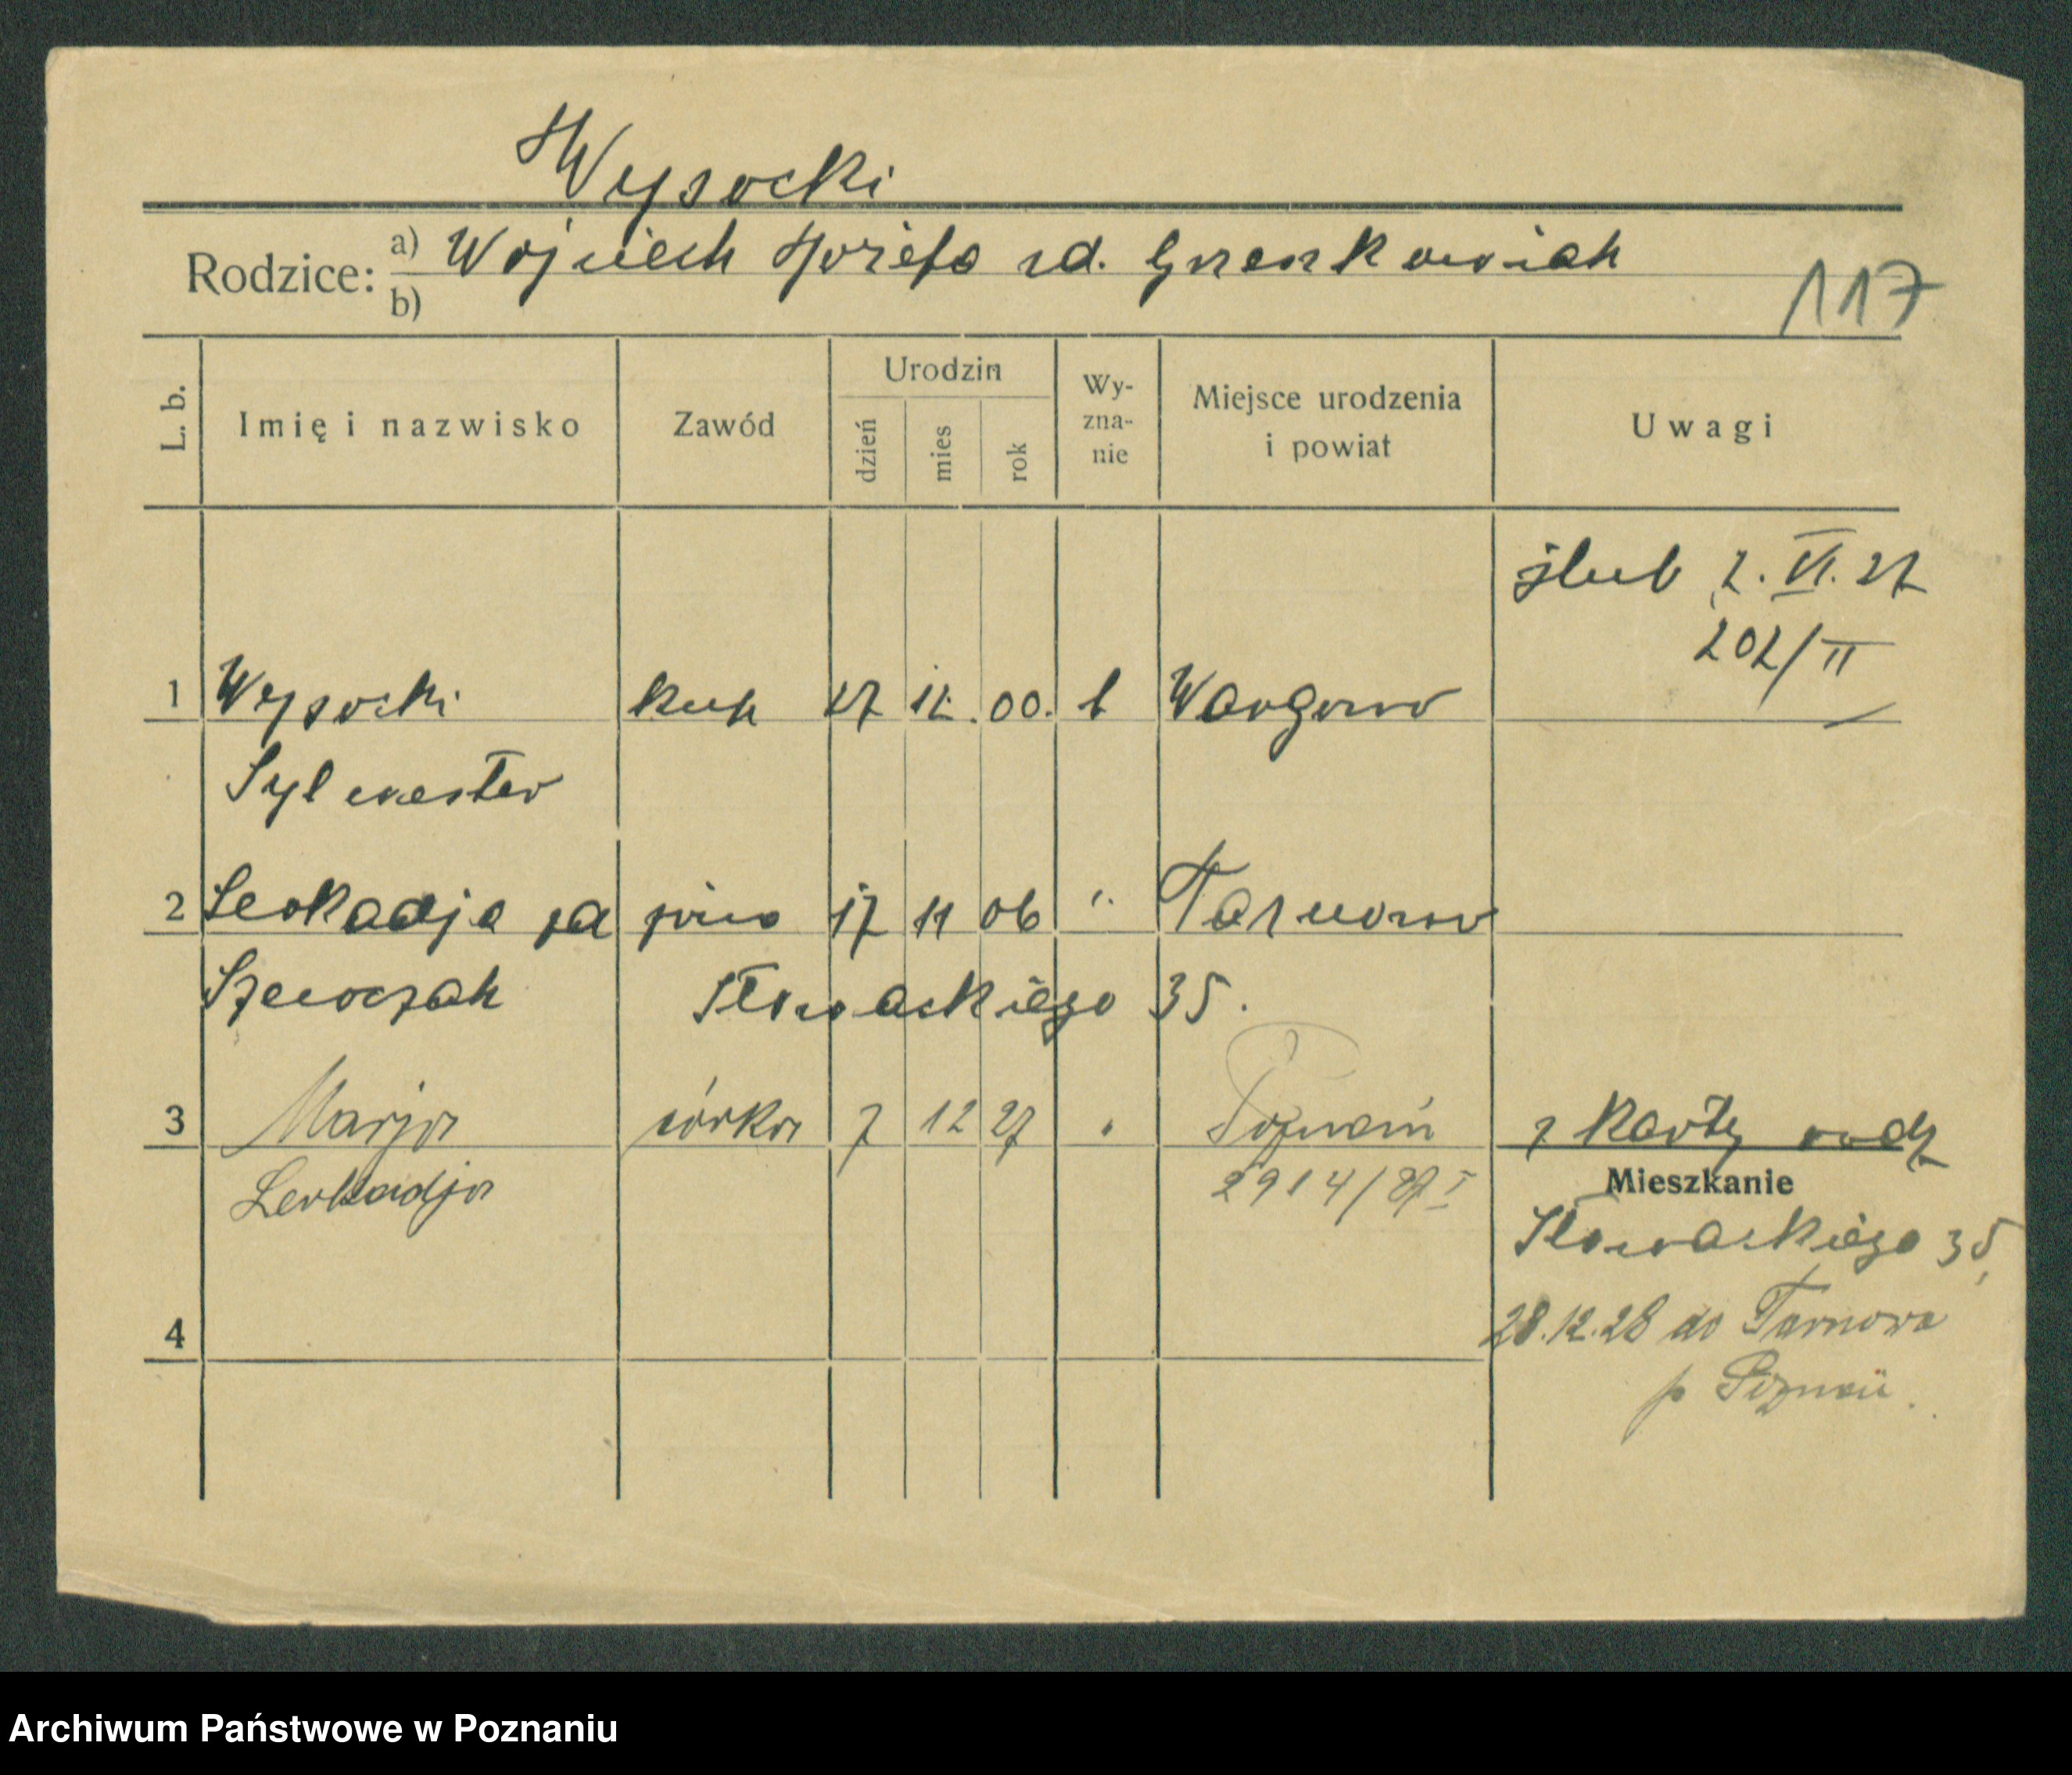 Wysocki
Rodzice: a) Wojciech Józefa zd. Grzeszkowiak
b)
117
L. b.
Imię i nazwisko
Zawód
Urodzin
dzień
mies
rok
Wy-
zna-
nie
Miejsce urodzenia
i powiat
Uwagi
ślub 2. VI. 27
202/II
1 Wysocki kup 27 12. 00. k Wargowo
Sylwester
2 Leokadja zd żona 17 11 06 ". Tarnowo
Szewczak Słowackiego 35.
3 Marja córka 7 12 27 " Poznań z karty rodz
Leokadja 2914/27 I
Mieszkanie
Słowackiego 35,
4
28.12.28 do Tarnowa
p Poznań.
Archiwum Państwowe w Poznaniu